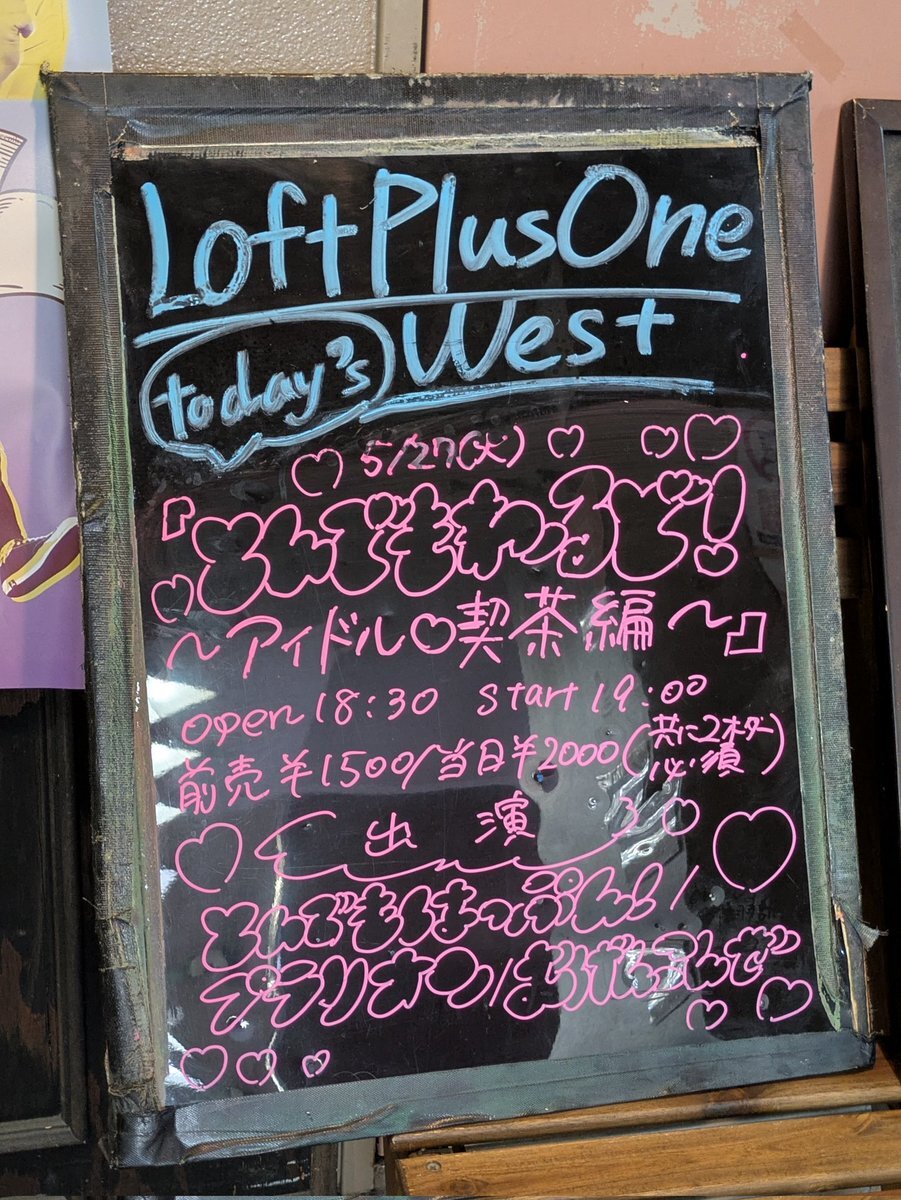 LoftPlusOne
West
today's
5/27(火)
『とんでもわーるど!
〜アイドル♡喫茶編〜』
open 18:30 start 19:00
前売¥1500/当日¥2000(共に2オーダー必須)
出演
とんでもはっぷん!/
プラリオン/